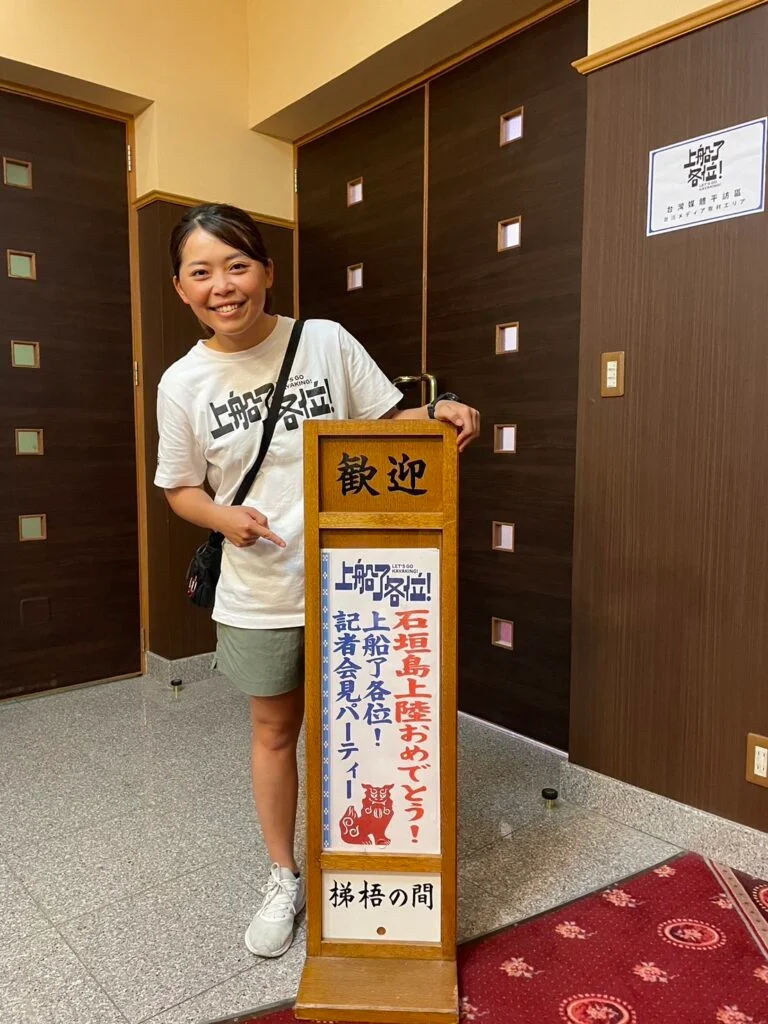 上船了
各位!
LET'S GO
KAYAKING!
台灣媒體平訪區
台湾メディア取材エリア
LET'S GO
KAYAKING!
上船了各位!
歡迎
上船了各位!
LET'S GO
KAYAKING!
石垣島上陸おめでとう!
上船了各位!
記者会見パーティー
梯梧の間